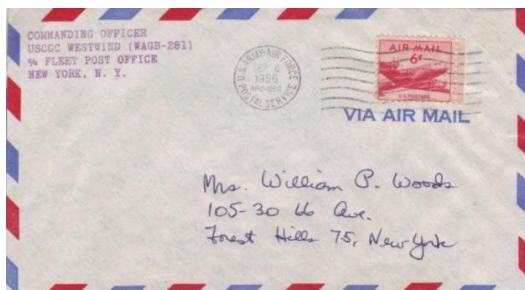 COMMANDING OFFICER
USCGC WESTWIND (WAGB-281)
℅ FLEET POST OFFICE
NEW YORK, N. Y.
U.S. ARMY-AIR FORCE
POSTAL SERVICE
SEP 6
1956
AIR MAIL
6¢
U.S. POSTAGE
VIA AIR MAIL
Mrs. William P. Woods
105-30 66 Ave.
Forest Hills 75, New York